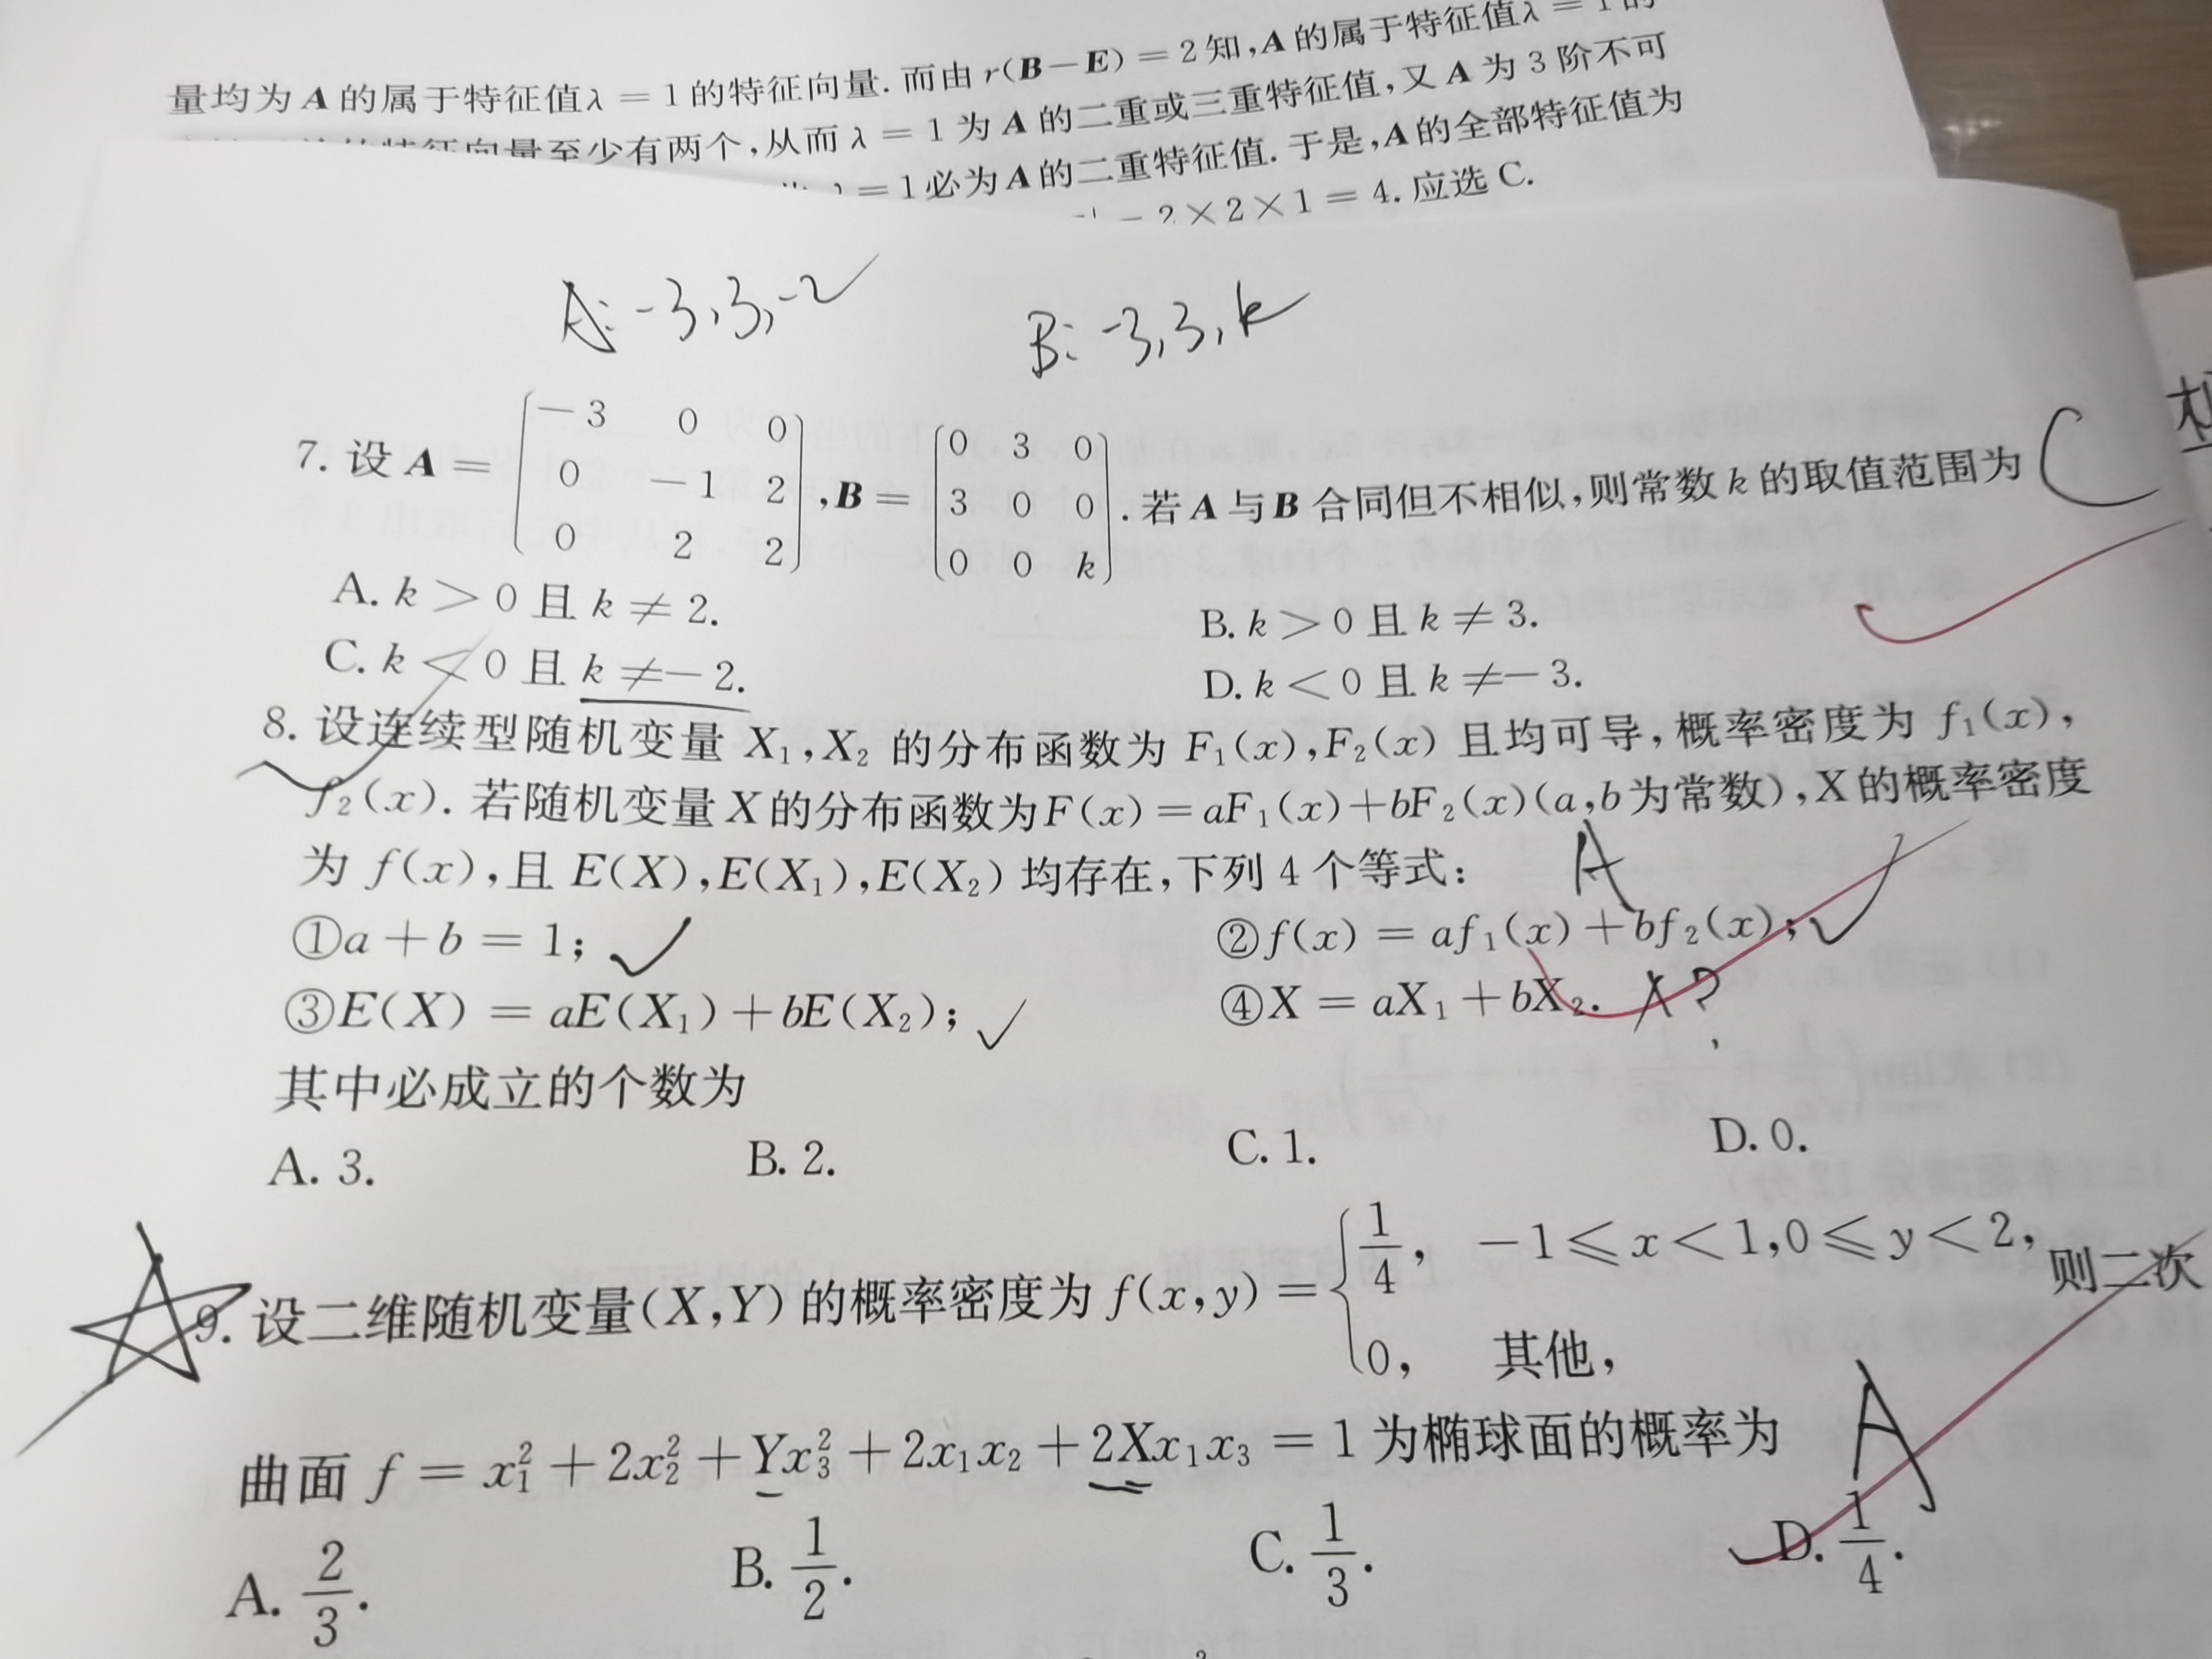 量均为 A 的属于特征值λ = 1的特征向量. 而由 r(B－E) = 2知,A 的属于特征值λ = 1 的
特征向量至少有两个,从而 λ = 1 为 A 的二重或三重特征值,又 A 为 3 阶不可
λ = 1必为A的二重特征值. 于是,A的全部特征值为
－2×2×1 = 4. 应选 C.
A: -3,3,-2
B: -3,3,k
7. 设 A = [－3 0 0; 0 －1 2; 0 2 2], B = [0 3 0; 3 0 0; 0 0 k]. 若 A 与 B 合同但不相似,则常数 k 的取值范围为 C
A. k > 0 且 k ≠ 2.
B. k > 0 且 k ≠ 3.
C. k < 0 且 k ≠－2.
D. k < 0 且 k ≠－3.
8. 设连续型随机变量 X₁,X₂ 的分布函数为 F₁(x),F₂(x) 且均可导,概率密度为 f₁(x),
f₂(x). 若随机变量X的分布函数为F(x) = aF₁(x)＋bF₂(x)(a,b为常数),X的概率密度
为 f(x),且 E(X),E(X₁),E(X₂) 均存在,下列 4 个等式: A
①a＋b = 1; ✓
②f(x) = af₁(x)＋bf₂(x); ✓
③E(X) = aE(X₁)＋bE(X₂); ✓
④X = aX₁＋bX₂. X?
其中必成立的个数为
A. 3.
B. 2.
C. 1.
D. 0.
9. 设二维随机变量(X,Y) 的概率密度为 f(x,y) = { 1/4, －1≤x＜1,0≤y＜2, 则二次
0, 其他,
曲面 f = x₁²＋2x₂²＋Yx₃²＋2x₁x₂＋2Xx₁x₃ = 1 为椭球面的概率为 A
A. 2/3.
B. 1/2.
C. 1/3.
D. 1/4.